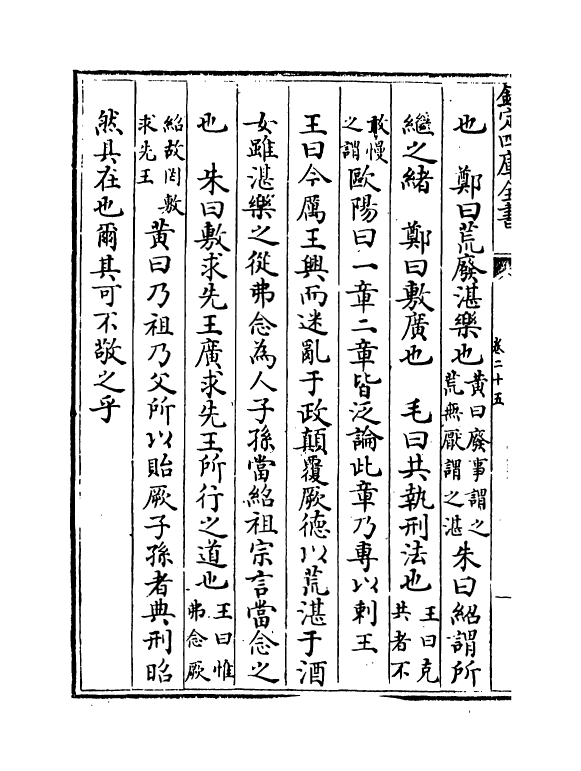 欽定四庫全書
卷二十五
也 鄭曰荒廢湛樂也黃曰廢事謂之荒無厭謂之湛朱曰紹謂所
繼之緒 鄭曰敷廣也 毛曰共執刑法也王曰克共者不
敢慢之謂歐陽曰一章二章皆泛論此章乃專以刺王
王曰今厲王興而迷亂于政顛覆厥德以荒湛于酒
女雖湛樂之從弗念為人子孫當紹祖宗言當念之
也 朱曰敷求先王廣求先王所行之道也王曰惟弗念厥
紹故罔敷求先王黃曰乃祖乃父所以貽厥子孫者典刑昭
然具在也爾其可不敬之乎